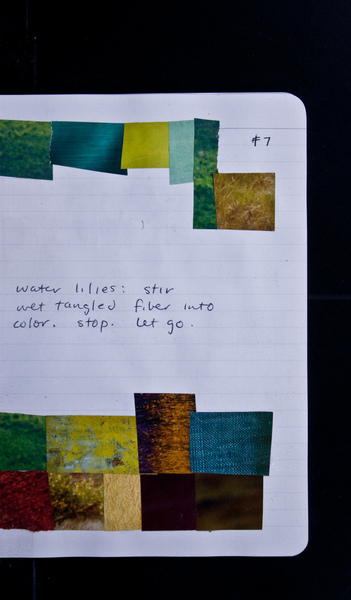 #7
water lilies: stir
wet tangled fiber into
color. stop. let go.